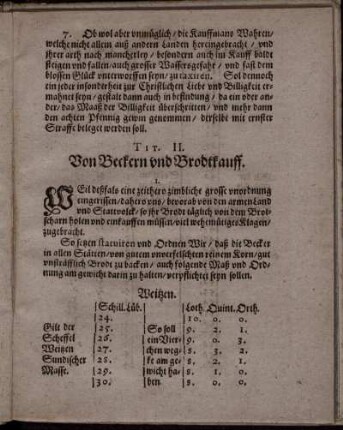 7. Ob wol aber vnmüglich / die Kauffmans Wahren /
welche nicht allein auß andern Landen hereingebracht / vnd
ihrer arth nach mancherley / besondern auch im Kauff boldt
steigen vnd fallen / auch grosser Wassersgefahr / vnd fast dem
blossen Glück unterworffen seyn / zu taxiren. Sol dennoch
ein jeder in sonderheit zur Christlichen Liebe vnd Billigkeit er-
mahnet seyn / gestalt dann auch in befindung / da ein oder an-
der / das Maaß der Billigkeit überschritten / vnd mehr dann
den achten Pfennig gewin genemmen / derselbe mit ernster
Straffe beleget werden soll.
TIT. II.
Von Beckern vnd Brodtkauff.
1.
WEil deßfals eine zeithero zimbliche grosse vnordnung
eingerissen / dahero vns / bevorab von den armen Land
vnd Statvolck / so ihr Brodt täglich von dem Brot-
scharn holen vnd einkauffen müssen / viel wehmütige Klagen /
zugebracht.
So setzen statuiren vnd Ordnen Wir / daß die Becker
in allen Stätten / von gutem vnverfelschten reinem Korn / gut
vnsträfflich Brodt zu backen / auch folgende Maß vnd Ord-
nung am gewicht darin zu halten / verpflichtet seyn sollen.
Weitzen.
Schill. Lüb. Loth. Quint. Orth.
24. 10. 0. 0.
Gilt der 25. So soll 9. 2. 1.
Scheffel 26. ein Vier- 9. 0. 3.
Weitzen 27. chen weg- 8. 3. 2.
Sundischer 28. ke am ge- 8. 2. 1.
Masse. 29. wicht ha- 8. 1. 0.
30. ben. 8. 0. 0.